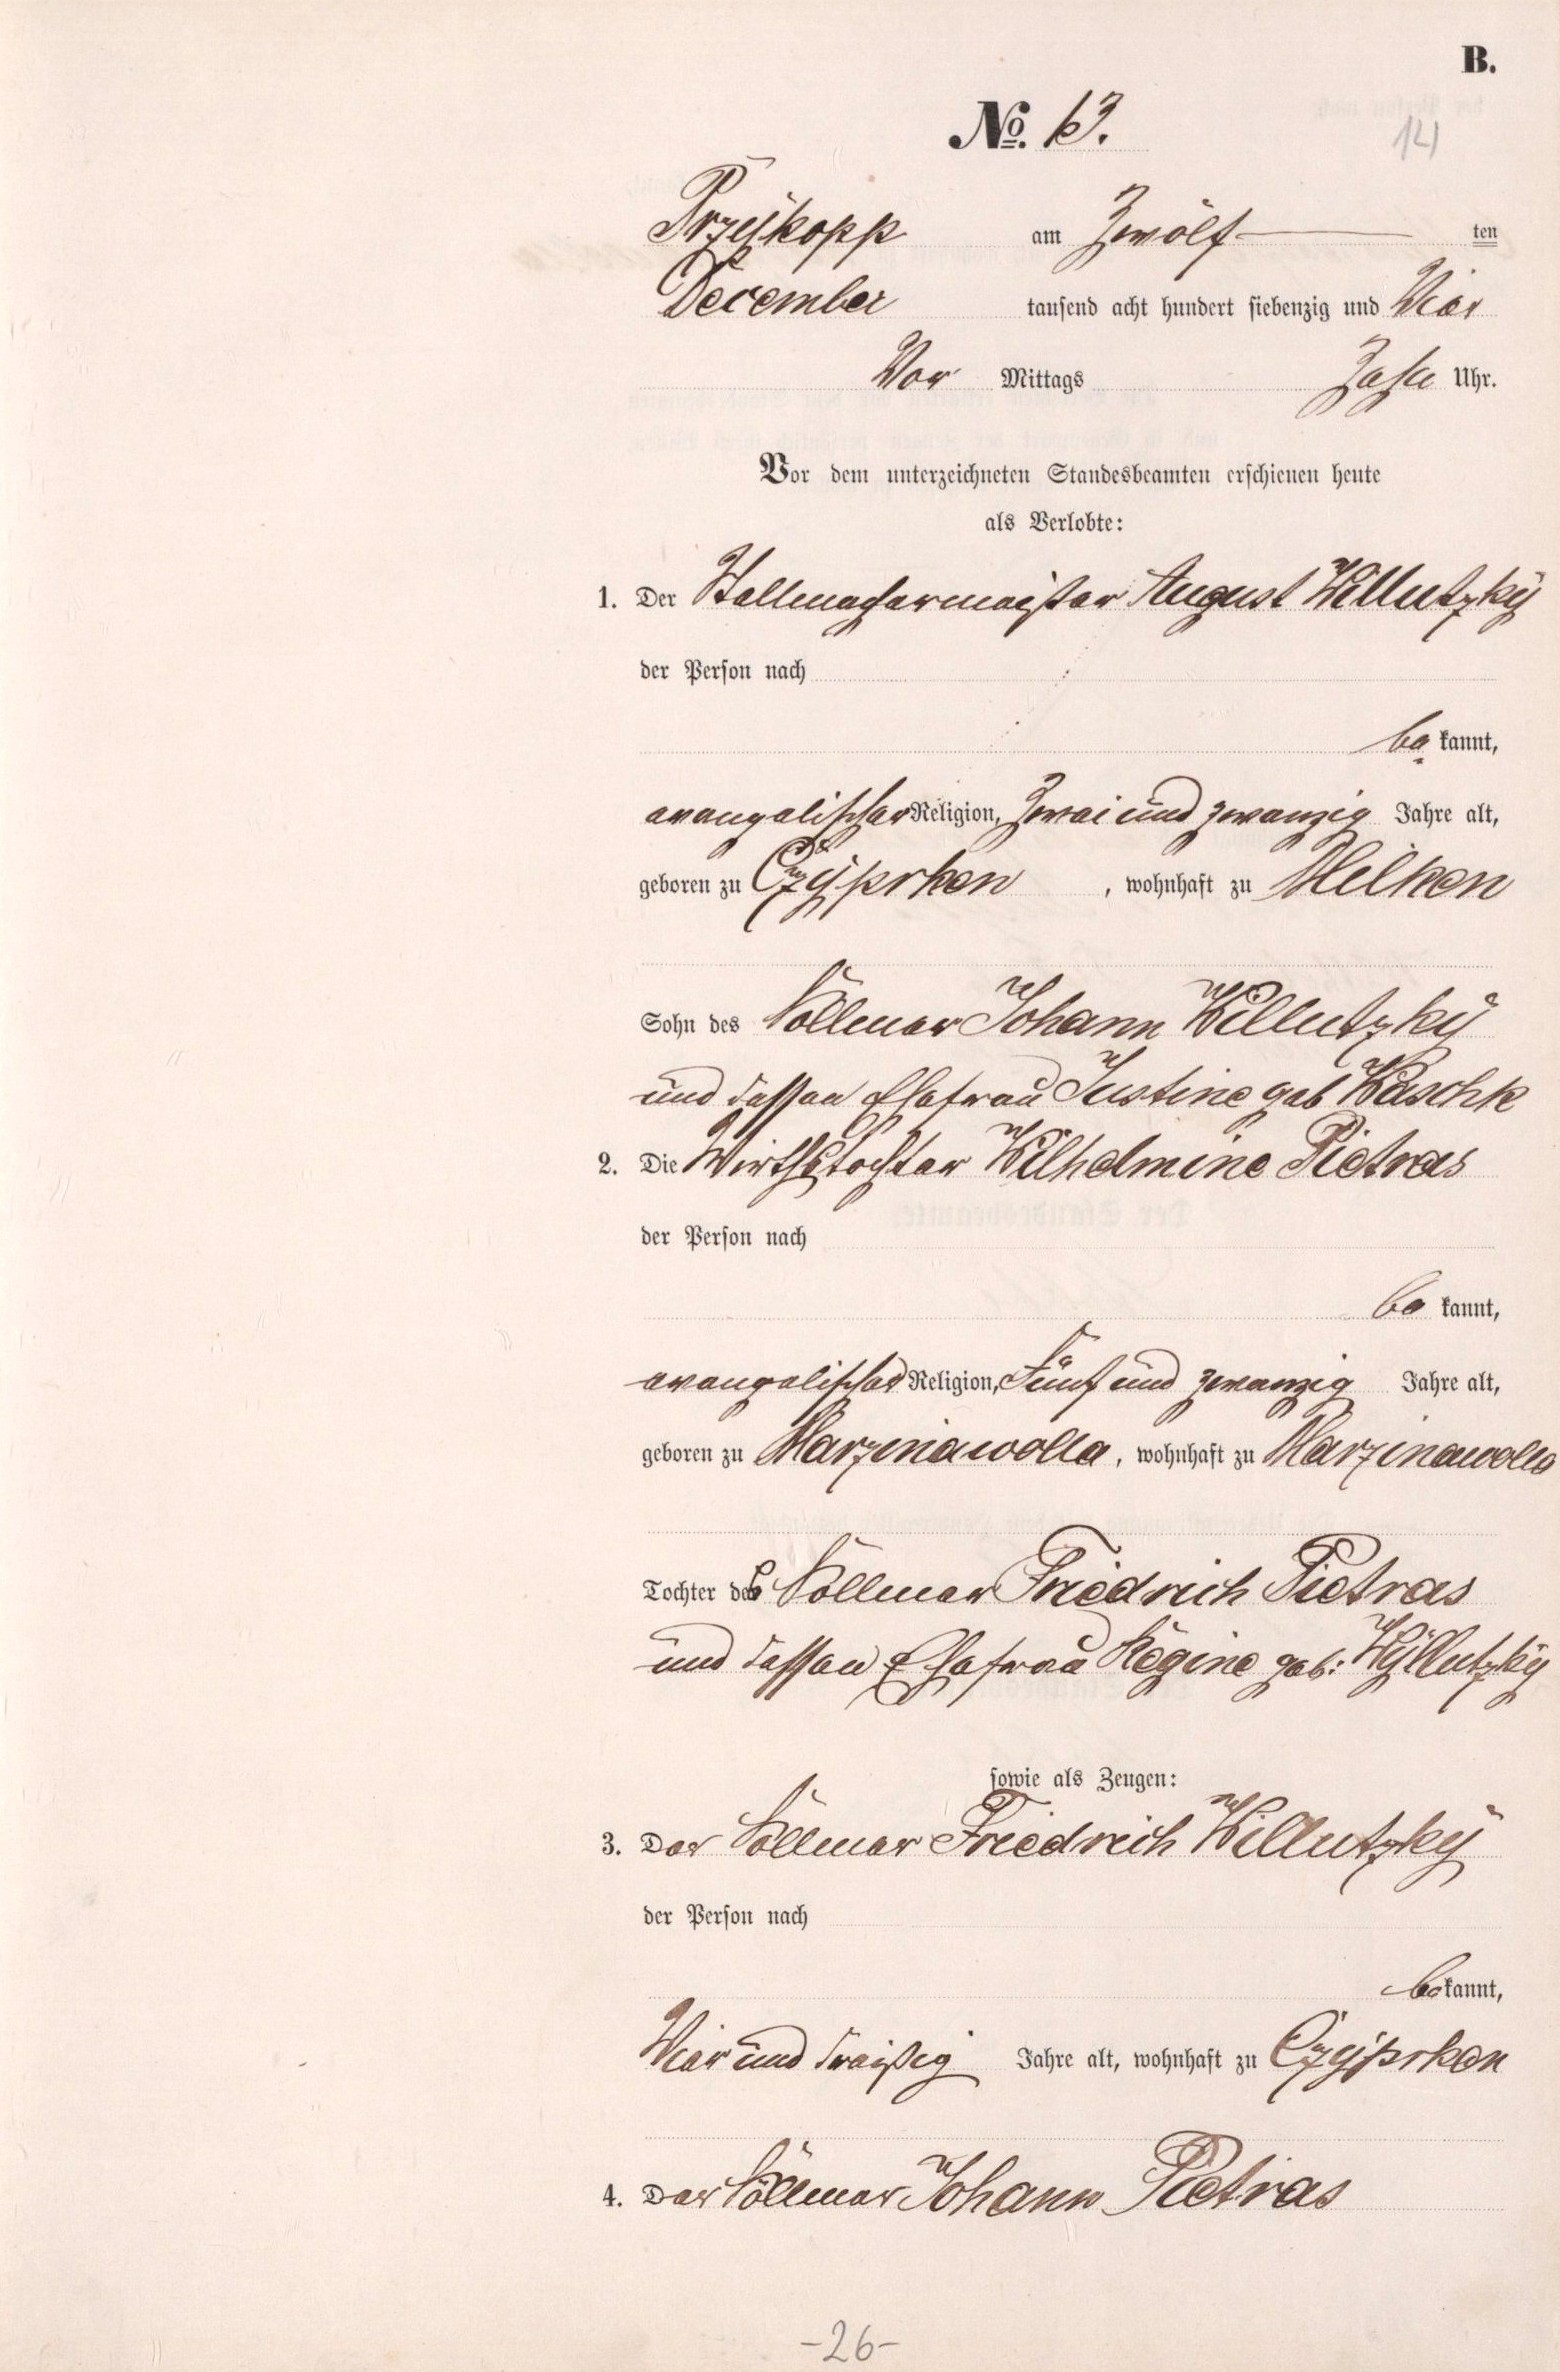 B.
No. 13.
14
Przykopp am Zwölf ten
December tausend acht hundert siebenzig und Vier
Vor Mittags Zehn Uhr.
Vor dem unterzeichneten Standesbeamten erschienen heute
als Verlobte:
1. Der Stellmachermeister August Willutzky
der Person nach
be kannt,
evangelischer Religion, Zwei und zwanzig Jahre alt,
geboren zu Czÿprken, wohnhaft zu Milken
Sohn des Köllmer Johann Willutzkÿ
und dessen Ehefrau Justine geb Waschk
2. Die Wirthstochter Wilhelmine Pietras
der Person nach
be kannt,
evangelischer Religion, Fünf und zwanzig Jahre alt,
geboren zu Marzinawolla, wohnhaft zu Marzinawolla
Tochter des Köllmer Friedrich Pietras
und dessen Ehefrau Regine geb: Wÿllutzkÿ
sowie als Zeugen:
3. Der Köllmer Friedrich Willutzkÿ
der Person nach
bekannt,
Vier und dreißig Jahre alt, wohnhaft zu Czÿprken
4. Der Köllmer Johann Pietras
-26-